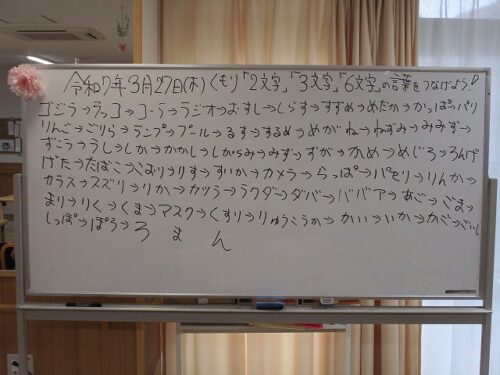 令和7年3月27日(木)くもり「2文字」「3文字」「6文字」の言葉をつなげよう!
ゴジラ→ラッコ→コーラ→ラジオ→おすし→しらす→すずめ→めだか→かっぱ→パリ
りんご→ごりら→ランプ→プール→るす→するめ→めがね→ねずみ→みみず→
ずこう→うし→しか→かかし→しがらみ→みず→ずが→かめ→めじろ→ろんげ
げた→たばこ→こおり→りす→すいか→カメラ→らっぱ→パセリ→りんか→
カラス→スズリ→りか→カツラ→ラクダ→ダバ→ババア→あご→ごま→
まり→りく→くま→マスク→くすり→りゅうこうか→かい→いか→かご→ごいし
しっぽ→ぽろ→ろまん